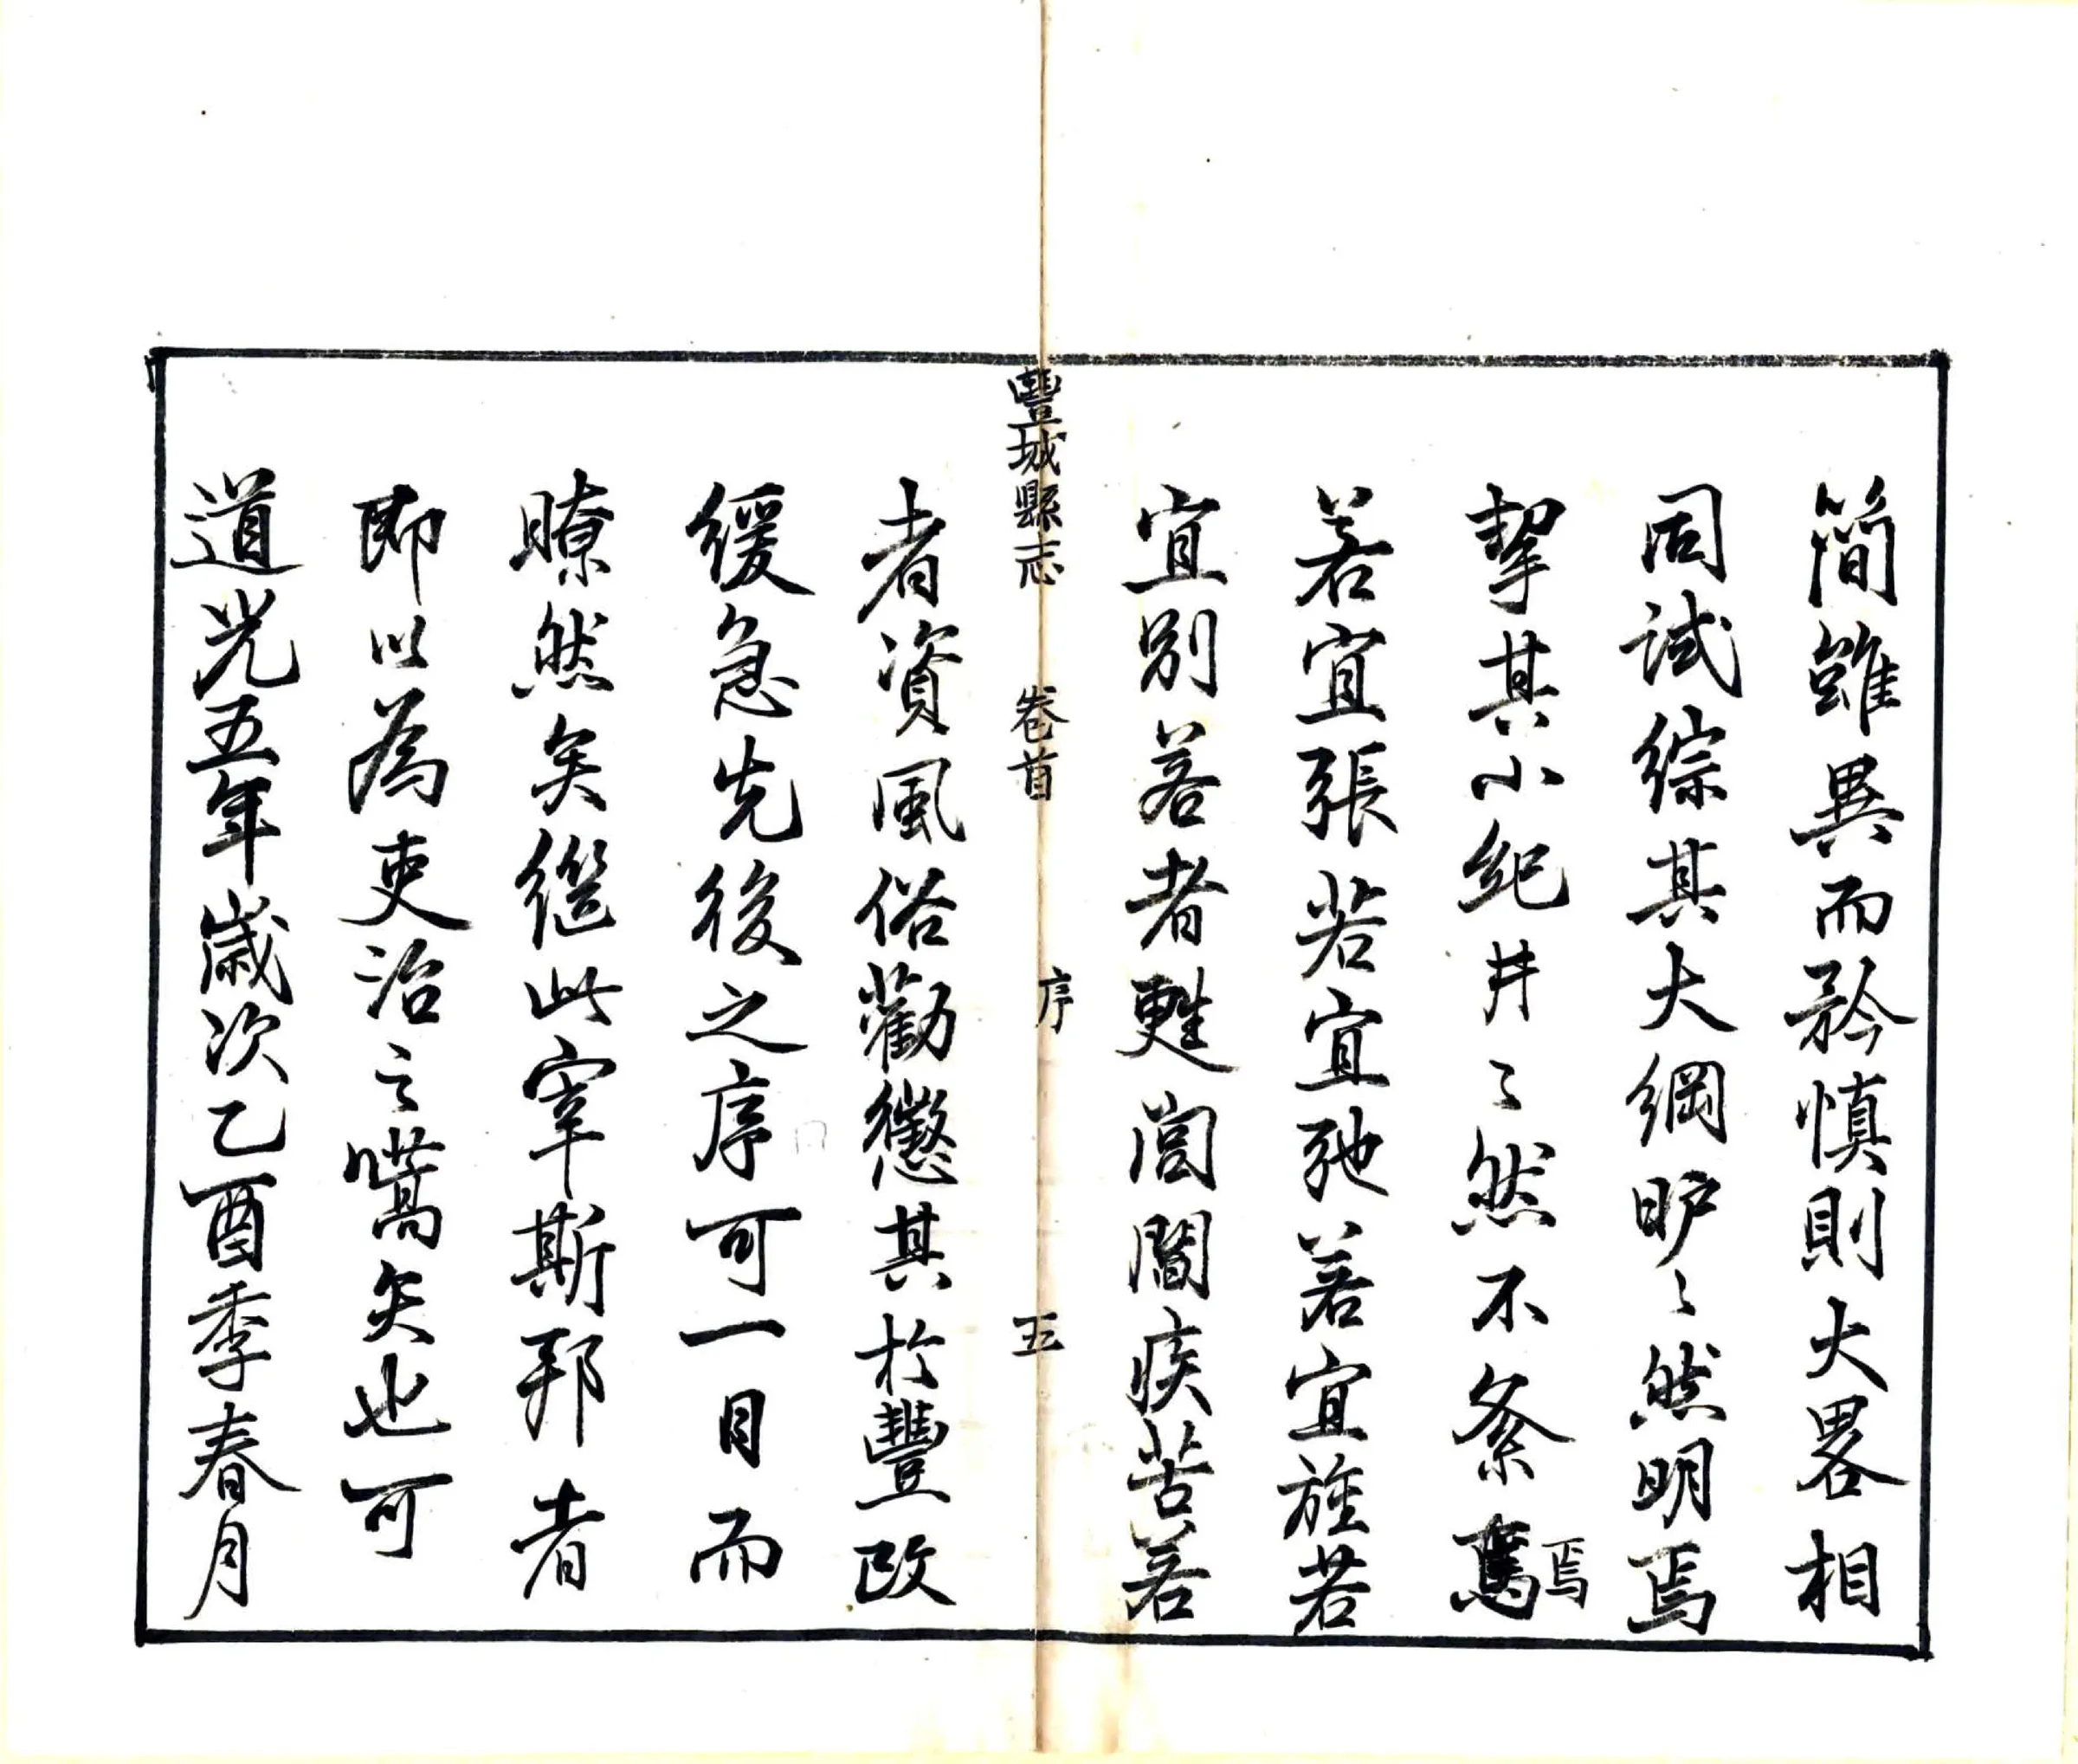 簡雖異而矜慎則大畧相
同試綜其大綱昈〻然明焉
挈其小紀井〻然不紊焉
若宜張若宜弛若宜旌若
宜別若者甦閭閻疾苦若
豐城縣志 卷首 序 五
者資風俗勸懲其於豐政
緩急先後之序可一目而
瞭然矣繼此宰斯邦者
即以為吏治之嚆矢也可
道光五年歲次乙酉季春月